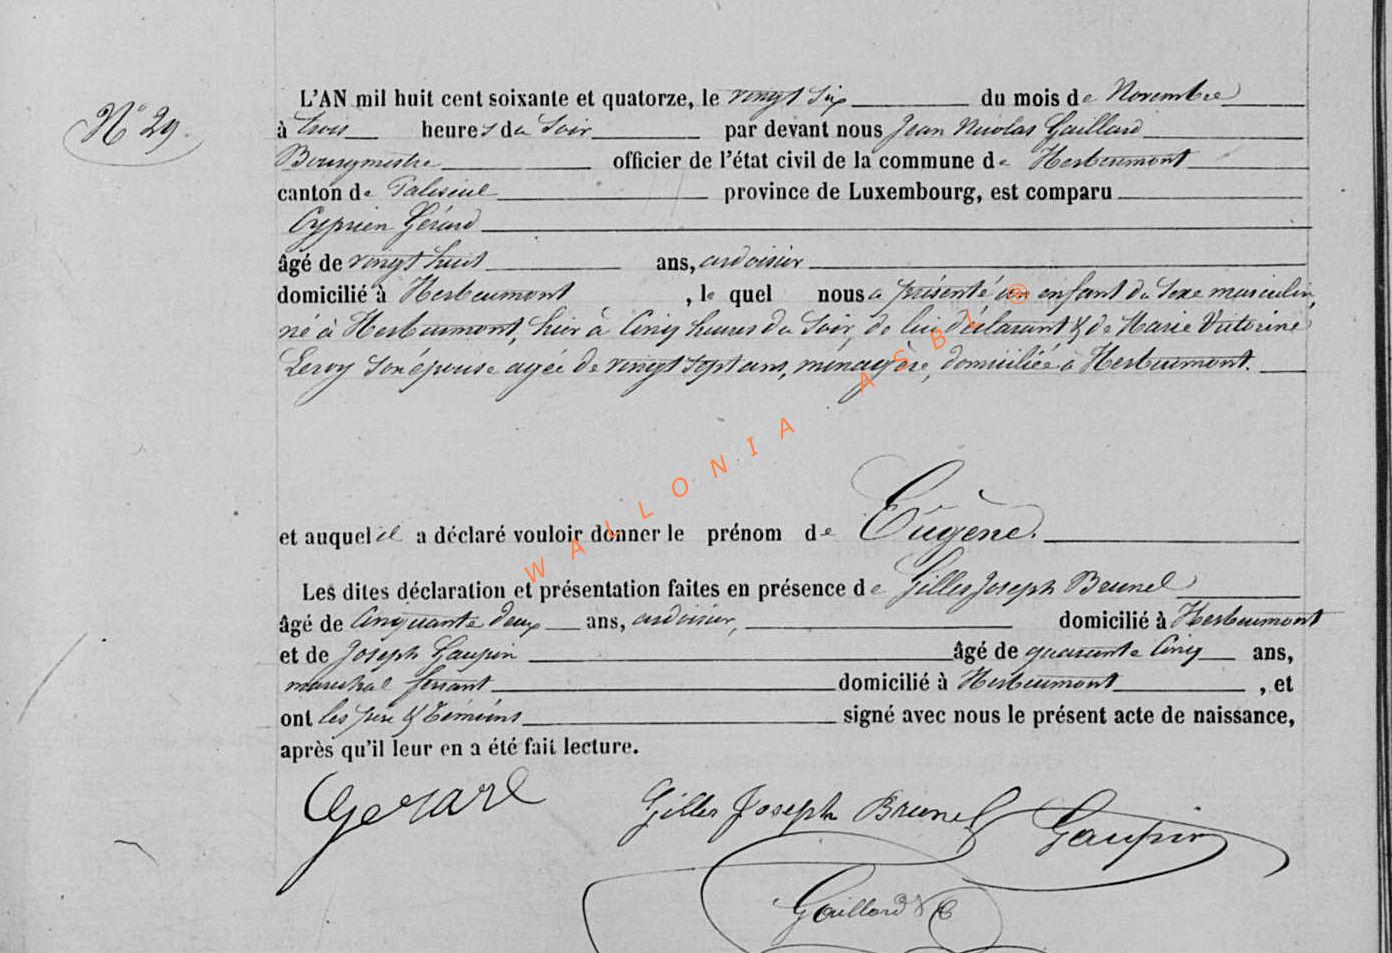 N° 29.
L'AN mil huit cent soixante et quatorze, le vingt six du mois de Novembre
à trois heures du Soir par devant nous Jean Nicolas Gaillard
Bourgmestre officier de l'état civil de la commune de Herbeumont
canton de Paliseul province de Luxembourg, est comparu
Cyprien Gérard
âgé de vingt huit ans, ardoisier
domicilié à Herbeumont, le quel nous a présenté un enfant du Sexe masculin,
né à Herbeumont, hier à Cinq heures du Soir, de lui déclarant & de Marie Victorine
Leroy Son épouse agée de vingt Sept ans, ménagère, domiciliée à Herbeumont.
et auquel il a déclaré vouloir donner le prénom de Eugène.
Les dites déclaration et présentation faites en présence de Gilles Joseph Brunel
âgé de Cinquante deux ans, ardoisier, domicilié à Herbeumont
et de Joseph Gaupin âgé de quarante Cinq ans,
maréchal ferrant domicilié à Herbeumont, et
ont les père & témoins signé avec nous le présent acte de naissance,
après qu'il leur en a été fait lecture.
Gerard Gilles Joseph Brunel Gaupin
Gaillard
WALLONIA ASBL ®